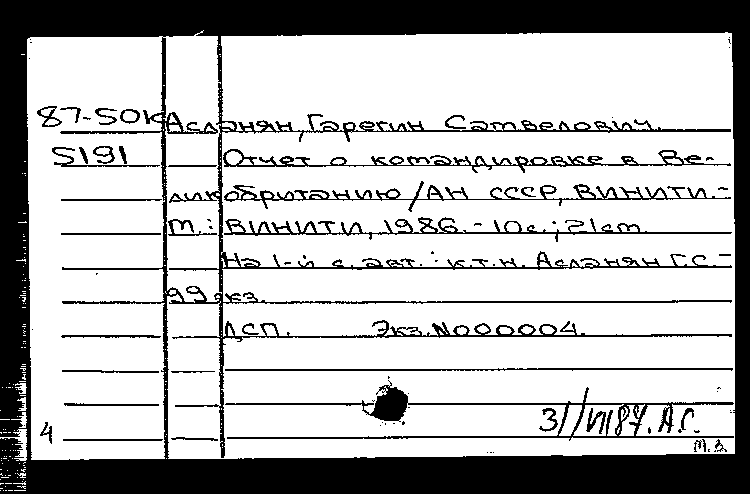 87-50К Асланян, Гарегин Сатвелович.
5191 Отчет о командировке в Ве-
ликобританию / АН СССР, ВИНИТИ. -
М.: ВИНИТИ, 1986. - 10с.; 21см.
На 1-й с. авт.: к.т.н. Асланян Г.С. -
99 экз.
ДСП. Экз. N000004.
31/VII 87. А.С.
4
М.З.